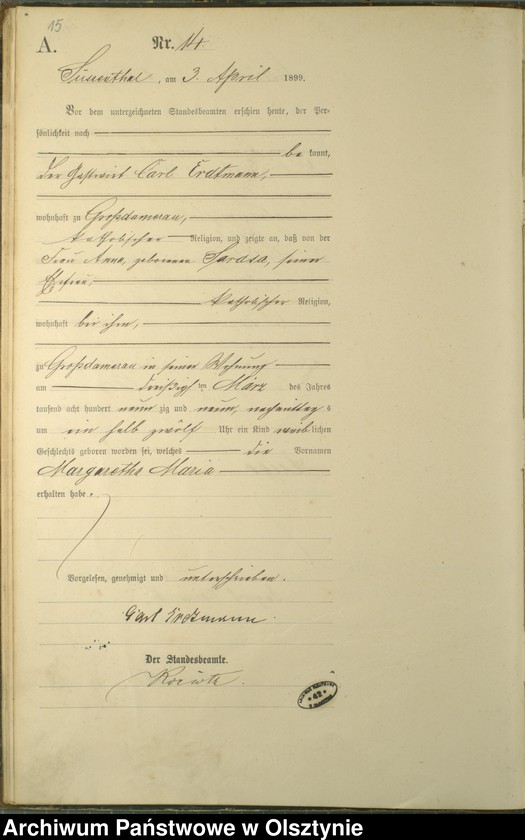 15
A.
Nr. 14.
am 3. April 1899.
Vor dem unterzeichneten Standesbeamten erschien heute, der Per-
sönlichkeit nach
be kannt,
der Gastwirt Carl Erdtmann,
wohnhaft zu Großdamerau,
katholischer Religion, und zeigte an, daß von der
Frau Anna, geborenen seiner
Ehefrau,
katholischer Religion,
wohnhaft bei ihm,
zu Großdamerau in seiner Wohnung
am dreißigsten März des Jahres
tausend acht hundert neunzig und neun, nachmittags
um ein halb zwölf Uhr ein Kind weiblichen
Geschlechts geboren worden sei, welches die Vornamen
Margaretha Maria
erhalten habe.
Vorgelesen, genehmigt und unterschrieben.
Carl Erdtmann
Der Standesbeamte.
42
Archiwum Państwowe w Olsztynie